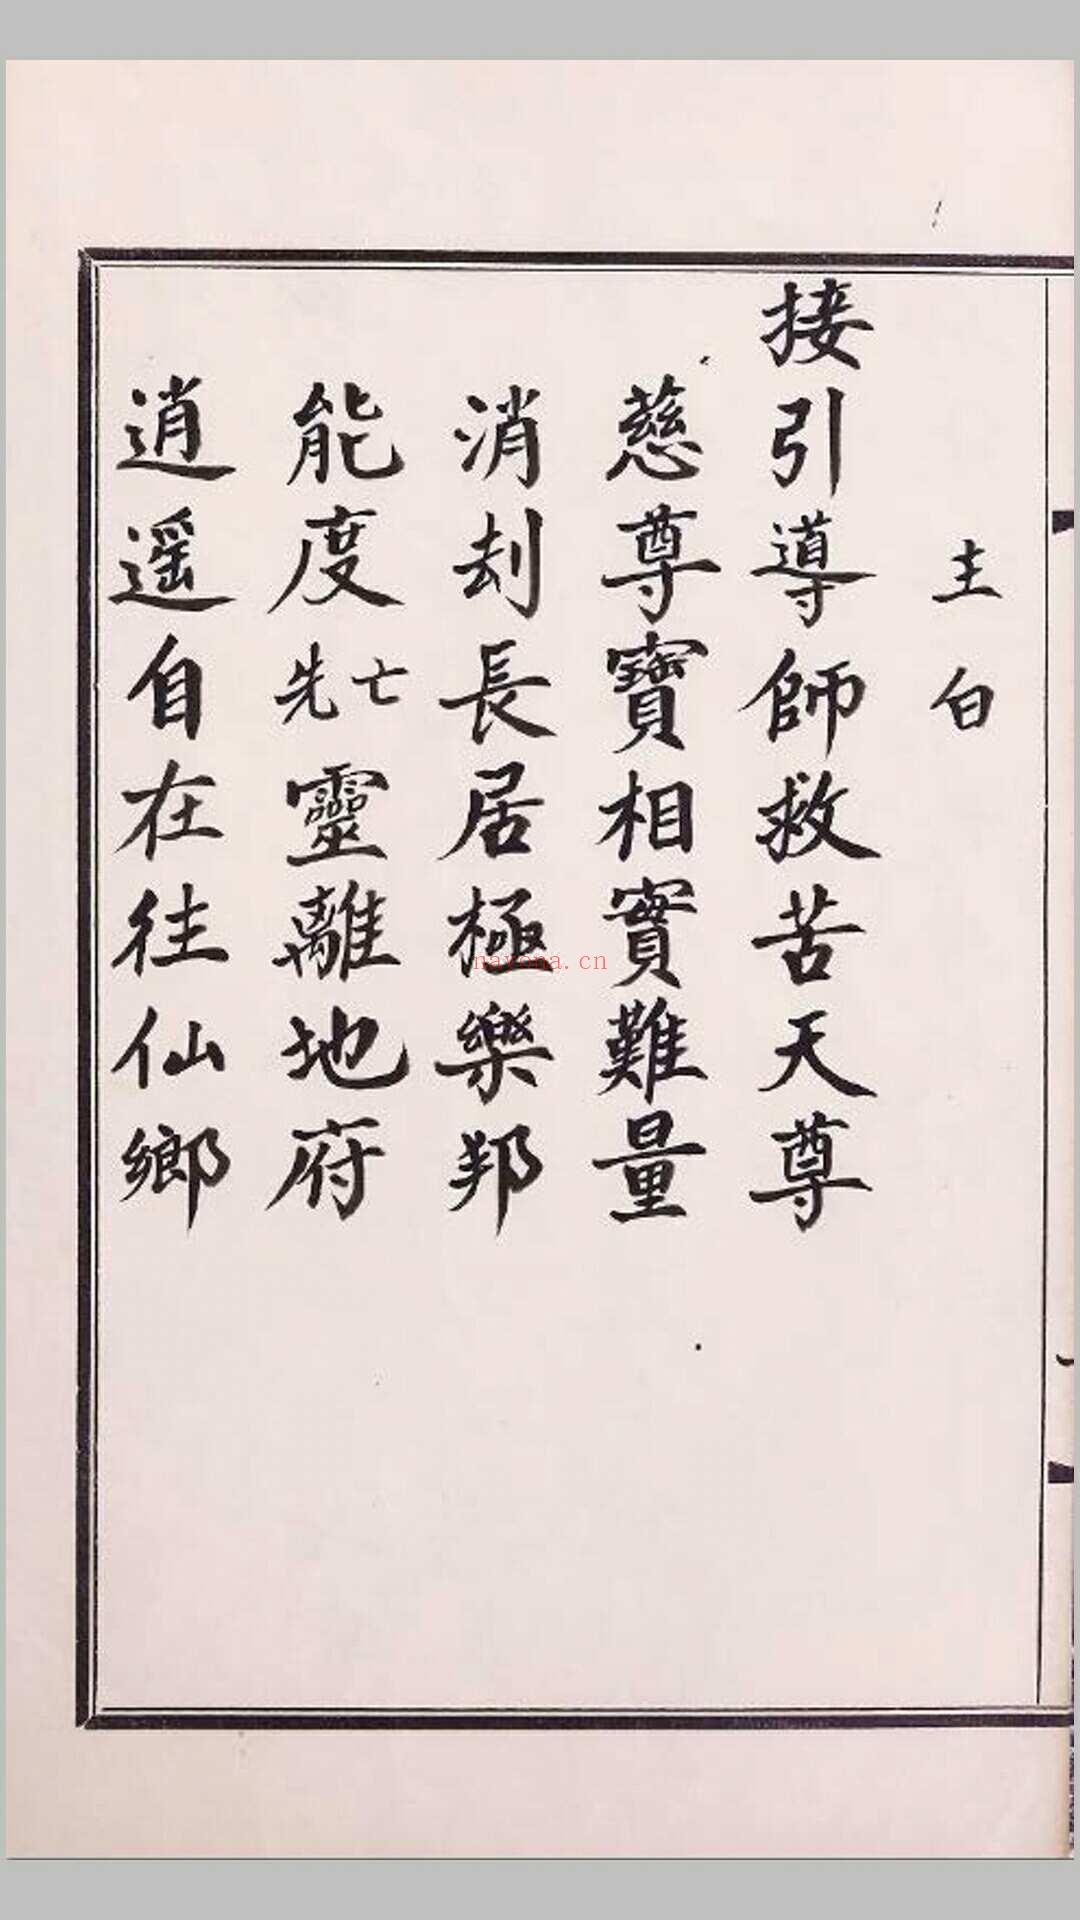 主白
接引導師救苦天尊
慈尊寶相實難量
消刦長居極樂邦
能度亡先靈離地府
逍遥自在往仙鄉
nayona.cn